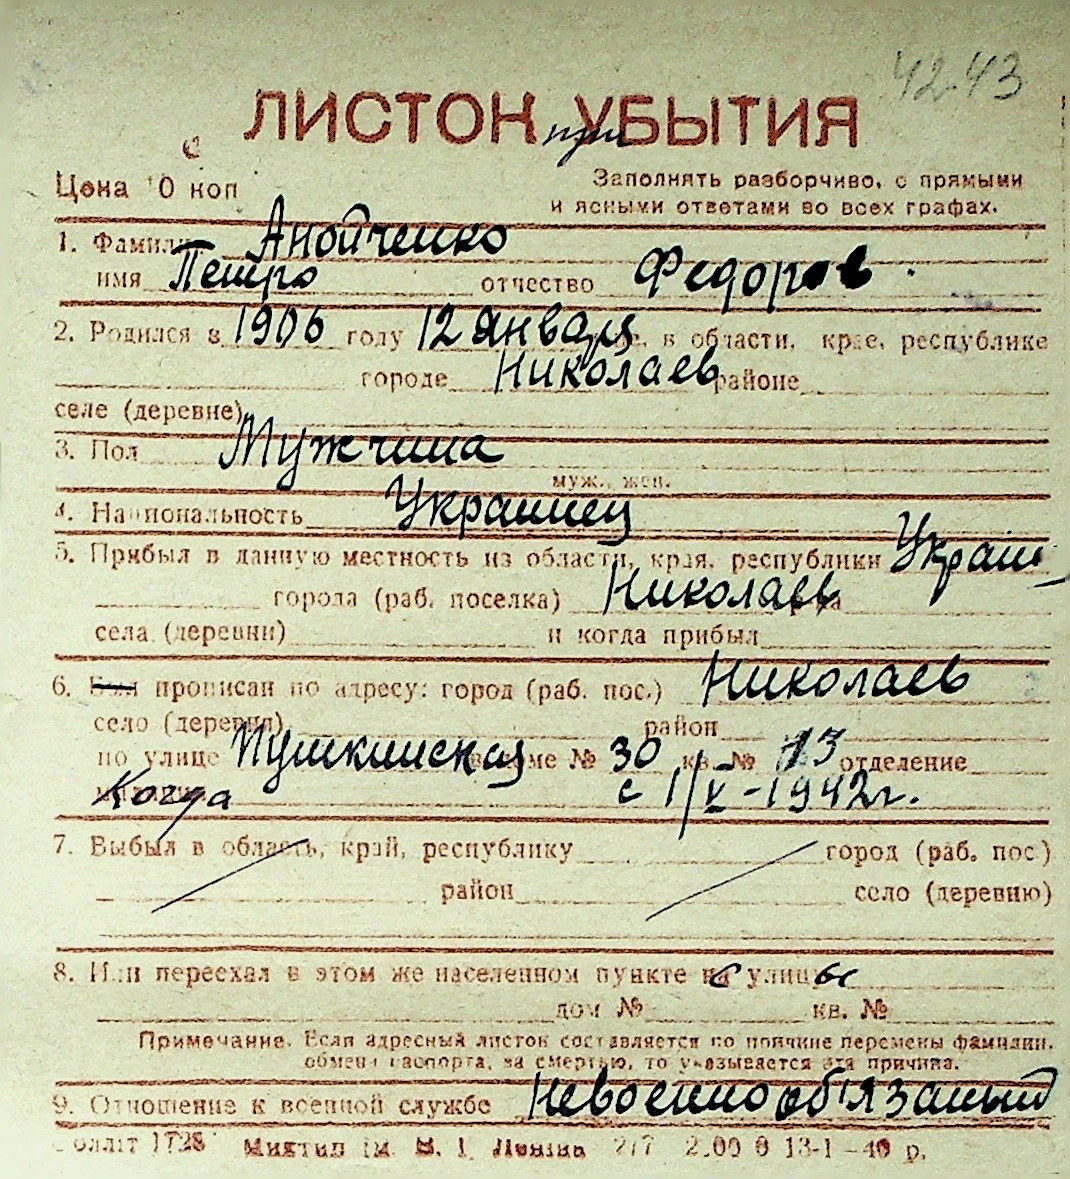 42-43
ЛИСТОК при УБЫТИЯ
Цена 10 коп
Заполнять разборчиво, с прямыми
и ясными ответами во всех графах.
1. Фамилия Анойченко
имя Петро отчество Федоров
2. Родился в 1906 году 12 января в области, крае, республике
городе Николаев районе
селе (деревне)
3. Пол Мужчина
муж., жен.
4. Национальность Украинец
5. Прибыл в данную местность из области, края, республики Украин
города (раб. поселка) Николаев
села (деревни) и когда прибыл
6. Был прописан по адресу: город (раб. пос.) Николаев
село (деревня) район
по улице Пушкинская доме № 30 кв. № 13 отделение
Когда с 1/V-1942г.
7. Выбыл в область, край, республику город (раб. пос.)
район село (деревню)
8. Или переехал в этом же населенном пункте с улицы
дом № кв. №
Примечание. Если адресный листок составляется по причине перемены фамилии,
обмена паспорта, за смертью, то указывается эта причина.
9. Отношение к военной службе Невоеннооб'язаный
Обллiт 1728 Миктип iм. В. I. Ленiна 277 2.00 0 13-1-40 р.